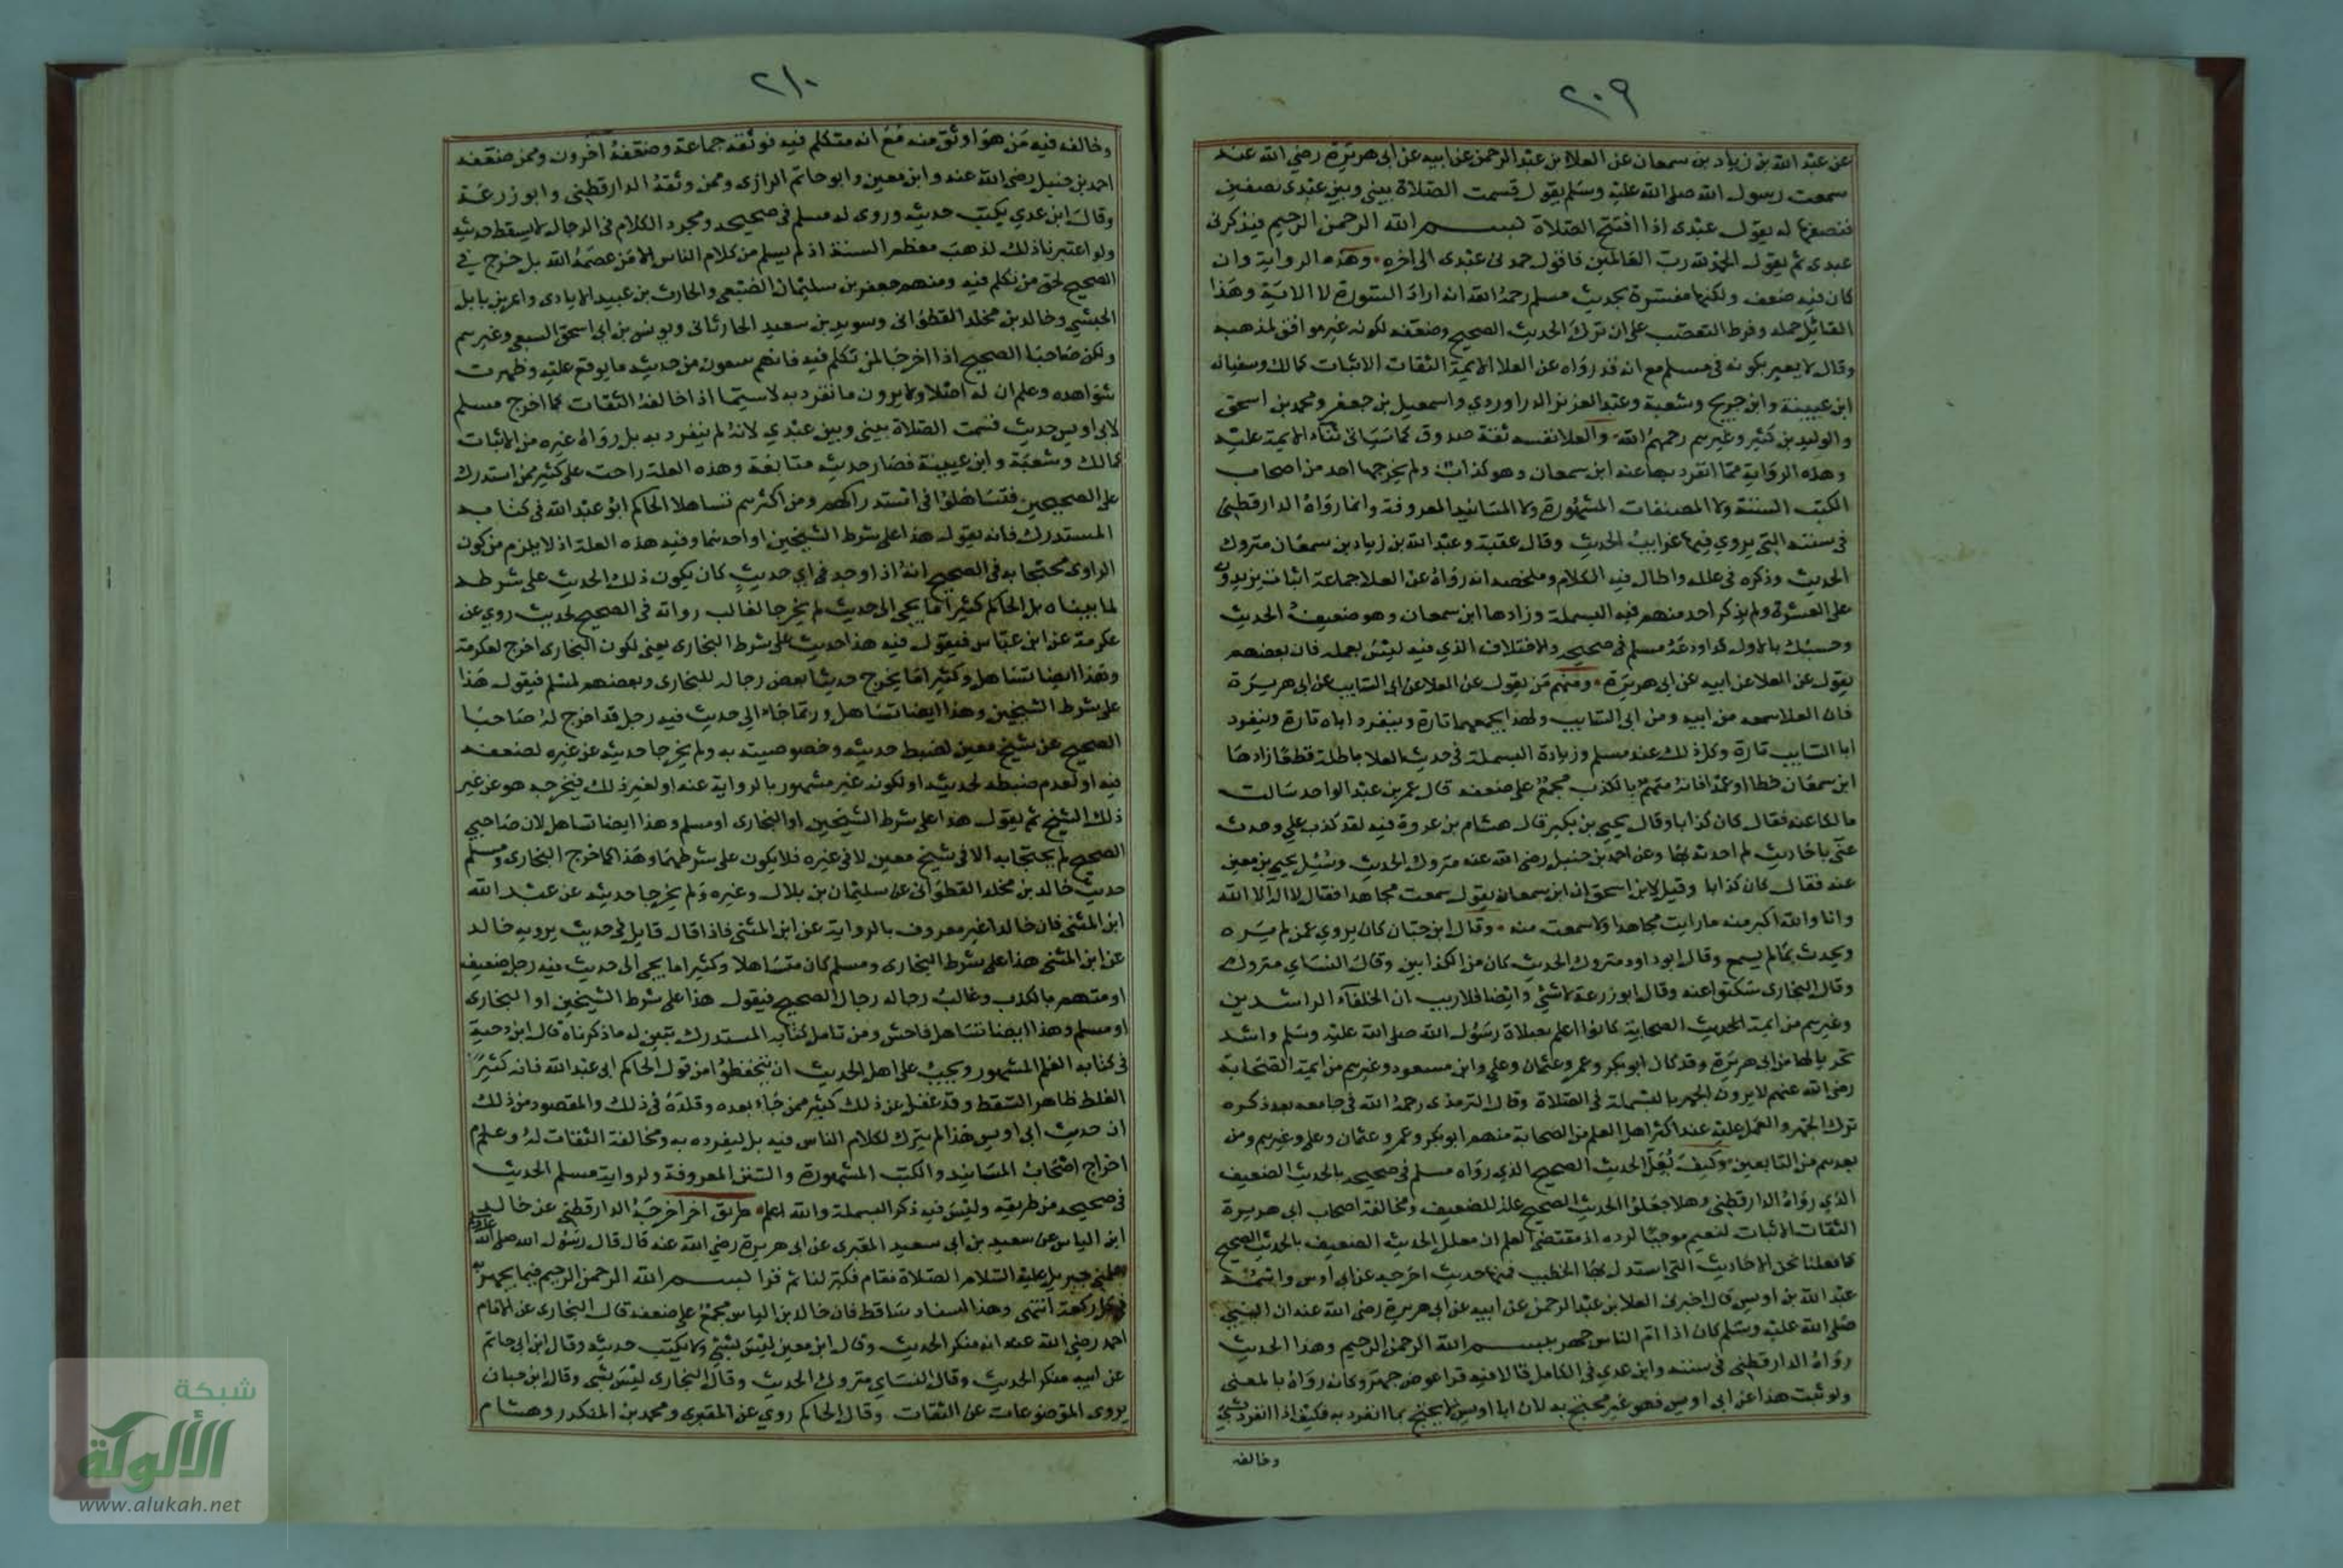 ٢٠٩
عن عبد الله بن زياد بن سمعان عن العلا بن عبد الرحمن عن ابيه عن ابى هريرة رضي الله عنه
سمعت رسول الله صلى الله عليه وسلم يقول قسمت الصلاة بيني وبين عبدى نصفين
فنصفها له يقول عبدى اذا افتتح الصلاة بسم الله الرحمن الرحيم فيذكرنى
عبدى ثم يقول الحمد لله رب العالمين فاقول حمدنى عبدى الى اخره وهذه الرواية وان
كان فيه ضعف ولكنها مفسرة بحديث مسلم رحمه الله انه اراد السورة لا الاية وهذا
القائل حمله وفرط التعصب على ان ترك الحديث الصحيح وضعفه لكونه غير موافق لمذهبه
وقال لا يعبر بكونه فى مسلم مع انه قد رواه عن العلا الايمة الثقات الاثبات كمالك وسفيان
ابن عيينة وابن جريج وشعبة وعبد العزيز الدراوردي واسمعيل بن جعفر ومحمد بن اسحق
والوليد بن كثير وغيرهم رحمهم الله والعلا نفسه ثقة صدوق كما سياتى ثناء الايمة عليه
وهذه الرواية مما انفرد بها عنه ابن سمعان وهو كذاب ولم يخرجها احد من اصحاب
الكتب الستة ولا المصنفات المشهورة ولا المسانيد المعروفة وانما رواه الدارقطنى
فى سننه التى يروي فيها غرايب الحديث وقال عقبه وعبد الله بن زياد بن سمعان متروك
الحديث وذكره فى علله واطال فيه الكلام وملخصه انه رواه عن العلا جماعة اثبات يزيدون
على العشرة ولم يذكر احد منهم فيه البسملة وزادها ابن سمعان وهو ضعيف الحديث
وحسبك بالاول قد اودعه مسلم فى صحيحه والاختلاف الذي فيه ليس بعلة فان بعضهم
يقول عن العلا عن ابيه عن ابى هريرة ومنهم من يقول عن العلا عن ابى السايب عن ابى هريرة
فان العلا سمعه من ابيه ومن ابى السايب ولهذا يجمعهما تارة وينفرد اباه تارة وينفرد
ابا السايب تارة وكل ذلك عند مسلم وزيادة البسملة فى حديث العلا باطلة قطعا زادها
ابن سمعان خطا او عمدا فانه متهم بالكذب مجمع على ضعفه قال عمر بن عبد الواحد سالت
مالكا عنه فقال كان كذابا وقال يحيى بن بكير قال هشام بن عروة فيه لقد كذب علي وحدث
عنى باحاديث لم احدث بها وعن احمد بن حنبل رضى الله عنه متروك الحديث وسئل يحيى بن معين
عنه فقال كان كذابا وقيل لابن اسحق ان ابن سمعان يقول سمعت مجاهدا فقال لا اله الا الله
وانا والله اكبر منه ما رايت مجاهدا ولا سمعت منه وقال ابن حبان كان يروي عمن لم يره
ويحدث بما لم يسمع وقال ابو داود متروك الحديث كان من الكذابين وقال النساي متروك
وقال البخارى سكتوا عنه وقال ابو زرعة لا شئ وايضا فلا ريب ان الخلفاء الراشدين
وغيرهم من ايمة الحديث الصحابة كانوا اعلم بصلاة رسول الله صلى الله عليه وسلم واشد
تحريا لها من ابى هريرة وقد كان ابو بكر وعمر وعثمان وعلي وابن مسعود وغيرهم من ايمة الصحابة
رضى الله عنهم لا يرون الجهر بالبسملة فى الصلاة وقال الترمذى رحمه الله فى جامعه بعد ذكره
ترك الجهر والعمل عليه عند اكثر اهل العلم من الصحابة منهم ابو بكر وعمر وعثمان وعلي وغيرهم ومن
بعدهم من التابعين وكيف نعل الحديث الصحيح الذي رواه مسلم فى صحيحه بالحديث الضعيف
الذي رواه الدارقطنى وهلا جعلوا الحديث الصحيح علة للضعيف ومخالفة اصحاب ابى هريرة
الثقات الاثبات لنعيم موجبا لرده اذ مقتضى العلم ان معلل الحديث الضعيف بالحديث الصحيح
كما فعلنا نحن الاحاديث التى استدل بها الخطيب فمنها حديث اخرجه عن ابى اوس واسمه
عبد الله بن اويس قال اخبرنى العلا بن عبد الرحمن عن ابيه عن ابى هريرة رضى الله عنه ان النبي
صلى الله عليه وسلم كان اذا ام الناس جهر ببسم الله الرحمن الرحيم وهذا الحديث
رواه الدارقطنى فى سننه وابن عدي فى الكامل قالا فيه قرا عوض جهر وكانه رواه بالمعنى
ولو ثبت هذا عن ابى اويس فهو غير محتج به لان ابا اويس لا يحتج بما انفرد به فكيف اذا انفرد بشئ
وخالفه
٢١٠
وخالفه فيه من هو اوثق منه مع انه متكلم فيه فوثقه جماعة وضعفه آخرون وممن ضعفه
احمد بن حنبل رضى الله عنه وابن معين وابو حاتم الرازى وممن وثقه الدارقطنى وابو زرعة
وقال ابن عدي يكتب حديثه وروى له مسلم فى صحيحه ومجرد الكلام فى الرجال لا يسقط حديثه
ولو اعتبرنا ذلك لذهب معظم السنة اذ لم يسلم من كلام الناس الا من عصمه الله بل خرج في
الصحيح لخلق من تكلم فيه ومنهم جعفر بن سليمان الضبعى والحارث بن عبيد الايادى وايمن بن نابل
الحبشي وخالد بن مخلد القطوانى وسويد بن سعيد الحدثانى ويونس بن ابى اسحق السبيعى وغيرهم
ولكن صاحبا الصحيح اذا اخرجا لمن تكلم فيه فانهم ينتقون من حديثه ما يوقع عليه وظهرت
شواهده وعلم ان له اصلا ولا يرون ما تفرد به لا سيما اذا خالفه الثقات كما اخرج مسلم
لابى اويس حديث قسمت الصلاة بينى وبين عبدي لانه لم ينفرد به بل رواه غيره من الاثبات
كمالك وشعبة وابن عيينة فصار حديثه متابعة وهذه العلة راحت على كثير ممن استدرك
على الصحيحين فتساهلوا فى استدراكهم ومن اكثرهم تساهلا الحاكم ابو عبد الله فى كتابه
المستدرك فانه يقول هذا على شرط الشيخين او احدهما وفيه هذه العلة اذ لا يلزم من كون
الراوى محتجا به فى الصحيح انه اذا وجد فى اي حديث كان يكون ذلك الحديث على شرطه
لما بيناه بل الحاكم كثيرا ما يجى الى حديث لم يخرج لغالب رواته فى الصحيح لحديث روي عن
عكرمة عن ابن عباس فيقول فيه هذا حديث على شرط البخارى يعنى لكون البخارى اخرج لعكرمة
وهذا ايضا تساهل وكثيرا ما يخرج حديثا بعض رجاله للبخارى وبعضهم لمسلم فيقول هذا
على شرط الشيخين وهذا ايضا تساهل وربما جاء الى حديث فيه رجل قد اخرج له صاحبا
الصحيح عن شيخ معين لضبط حديثه وخصوصيته به ولم يخرجا حديثه عن غيره لضعفه
فيه او لعدم ضبطه لحديثه او لكونه غير مشهور بالرواية عنه او لغير ذلك فيخرجه هو عن غير
ذلك الشيخ ثم يقول هذا على شرط الشيخين او البخارى او مسلم وهذا ايضا تساهل لان صاحبي
الصحيح لم يحتجا به الا فى شيخ معين لا فى غيره فلا يكون على شرطهما وهذا كما خرج البخارى ومسلم
حديث خالد بن مخلد القطوانى عن سليمان بن بلال وغيره ولم يخرجا حديثه عن عبد الله
ابن المثنى فان خالدا غير معروف بالرواية عن ابن المثنى فاذا قال قايل فى حديث يرويه خالد
عن ابن المثنى هذا على شرط البخارى ومسلم كان متساهلا وكثيرا ما يجى الى حديث فيه رجل ضعيف
او متهم بالكذب وغالب رجاله رجال الصحيح فيقول هذا على شرط الشيخين او البخارى
او مسلم وهذا ايضا تساهل فاحش ومن تامل كتابه المستدرك تبين له ما ذكرناه قال ابن دحية
فى كتابه العلم المشهور ويجب على اهل الحديث ان يتحفظوا من قول الحاكم ابى عبد الله فانه كثير
الغلط ظاهر السقط وقد غفل عن ذلك كثير ممن جاء بعده وقلده فى ذلك والمقصود من ذلك
ان حديث ابى اويس هذا لم يترك لكلام الناس فيه بل لتفرده به ومخالفة الثقات له وعدم
اخراج اصحاب المسانيد والكتب المشهورة والسنن المعروفة ولرواية مسلم الحديث
فى صحيحه من طريقه وليس فيه ذكر البسملة والله اعلم طريق اخر اخرجه الدارقطنى عن خالد
ابن الياس عن سعيد بن ابى سعيد المقبرى عن ابى هريرة رضى الله عنه قال قال رسول الله صلى الله عليه وسلم
علمنى جبريل عليه السلام الصلاة فقام فكبر لنا ثم قرا بسم الله الرحمن الرحيم فيما يجهر به
فى كل ركعة انتهى وهذا اسناد ساقط فان خالد بن الياس مجمع على ضعفه قال البخارى عن الامام
احمد رضى الله عنه انه منكر الحديث وقال ابن معين ليس بشئ ولا يكتب حديثه وقال ابن ابى حاتم
عن ابيه منكر الحديث وقال النساي متروك الحديث وقال البخارى ليس بشى وقال ابن حبان
يروى الموضوعات عن الثقات وقال الحاكم روي عن المقبرى ومحمد بن المنكدر وهشام
شبكة
الألوكة
www.alukah.net